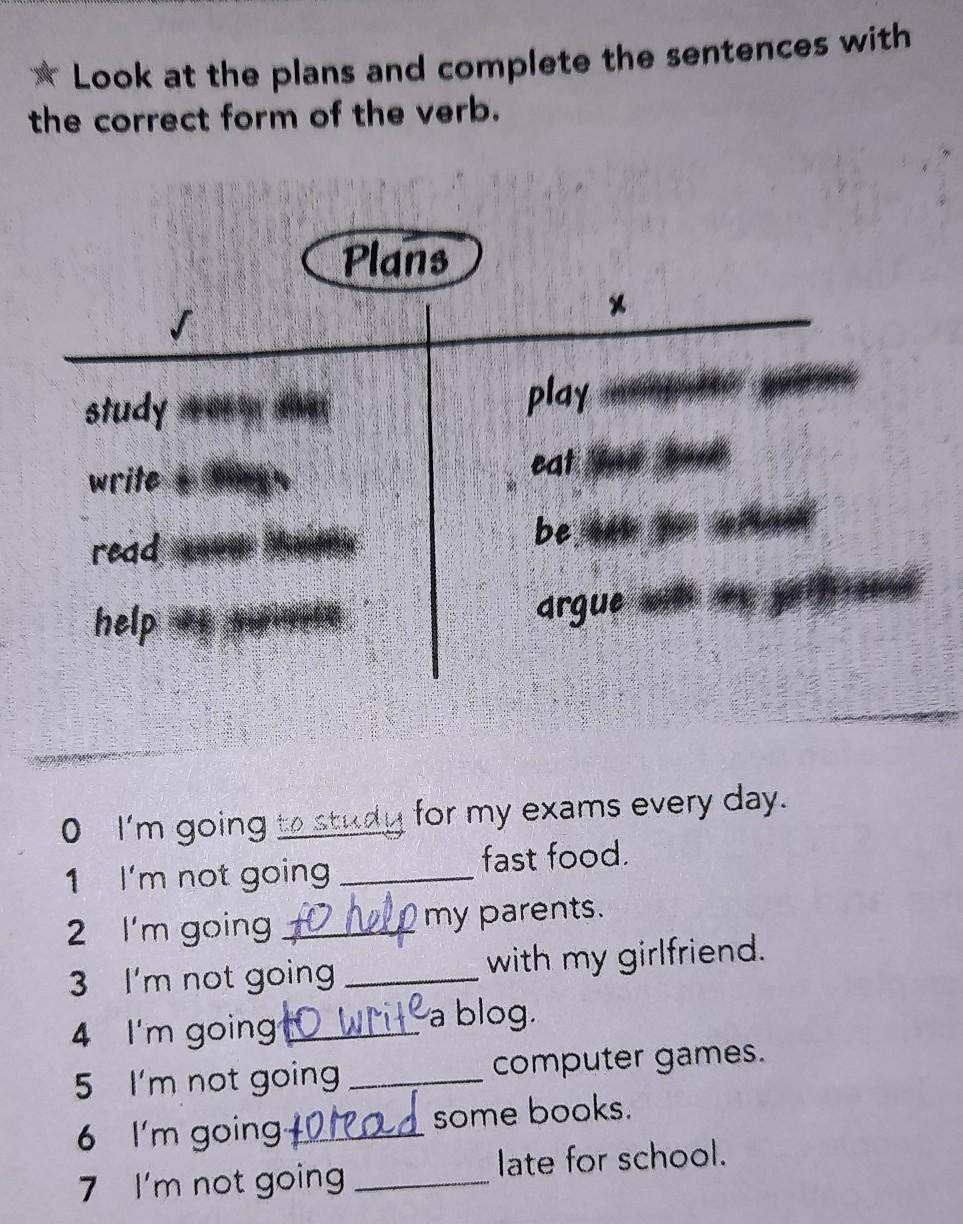 ★ Look at the plans and complete the sentences with
the correct form of the verb.
Plans
✓ x
study play
write eat
read be
help argue
0 I'm going to study for my exams every day.
1 I'm not going ________ fast food.
2 I'm going to help my parents.
3 I'm not going ________ with my girlfriend.
4 I'm going to write a blog.
5 I'm not going ________ computer games.
6 I'm going to read some books.
7 I'm not going ________ late for school.